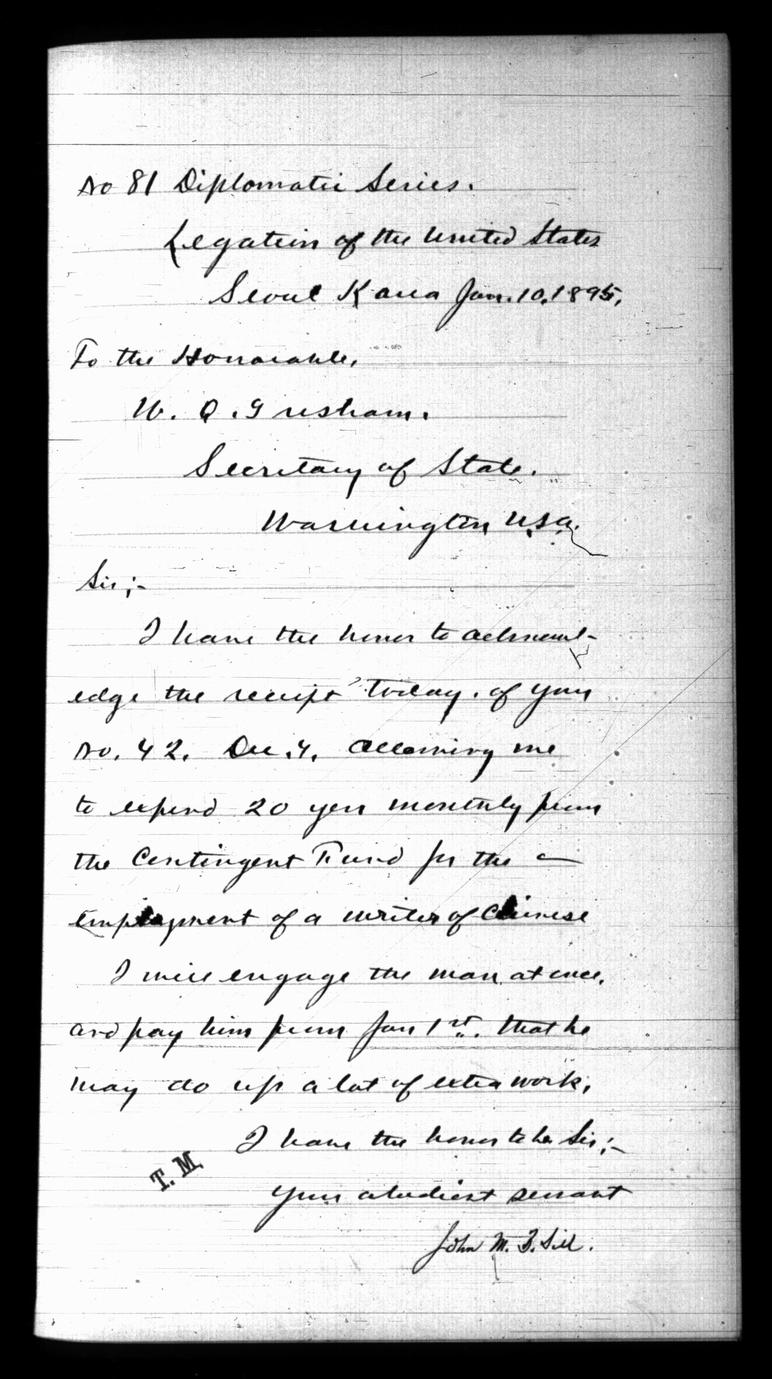 No 81 Diplomatic Series.
Legation of the United States
Seoul Korea Jan. 10, 1895,
To the Honorable,
W. Q. Gresham.
Secretary of State.
Washington U.S.A.
Sir;-
I have the honor to acknowl-
edge the receipt today. of your
No. 42. Dec. 4. allowing me
to expend 20 yen monthly from
the Contingent Fund for the
employment of a writer of Chinese
I will engage the man at once,
and pay him from Jan 1st. that he
may do up a lot of extra work,
I have the honor to be Sir;-
Your obedient servant
T.M.
John M. B. Sill.